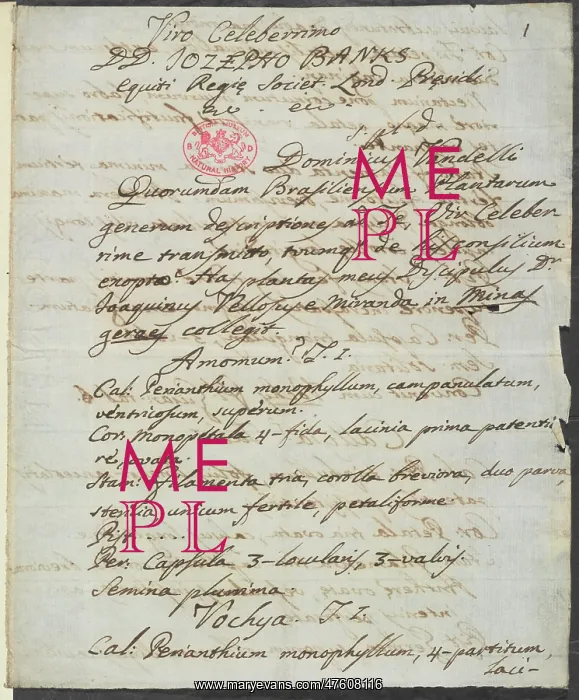 Viro Celeberrimo
1
DD. JOZEPHO BANKS
Equiti Regię Societ. Lond Pręsidi
BRITISH MUSEUM
NATURAL HISTORY
s. pl. d.
Dominicus Vandelli
Quorumdam Brasiliensium Plantarum
generum descriptiones ad Te, Vir Celeber
rime transmitto, tuumq de his consilium
exopto. Has plantas meus Discipulus Dr
Joaquinus Vellosus e Miranda in Minas
geraes collegit.
Amomum? T. 1.
Cal: Perianthium monophyllum, campanulatum,
ventricosum, superum.
Cor: monopetala 4-fida, lacinia prima patenti
re, ovata.
Stam: filamenta tria, corolla breviora, duo parva
sterilia, unicum fertile, petaliforme
Pist. ....
Per: Capsula 3-locularis, 3-valvis.
Semina plurima
Vochya. T. 1.
Cal: Perianthium monophyllum, 4-partitum,
laci-
ME
PL
ME
PL
www.maryevans.com/47608116